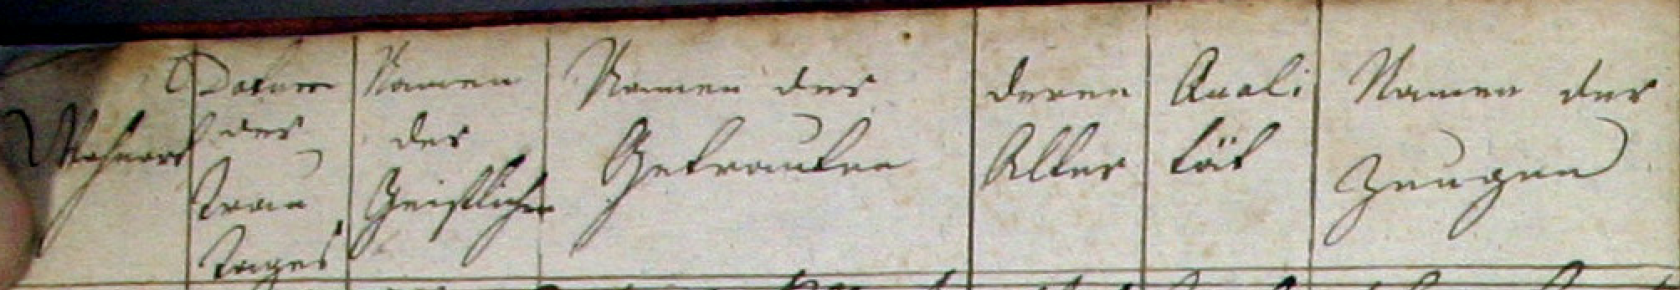 Wohnort
Datum
des
Trau
tages
Namen
des
Geistlichen
Namen der
Getrauten
deren
Alter
Quali
tät
Namen der
Zeugen